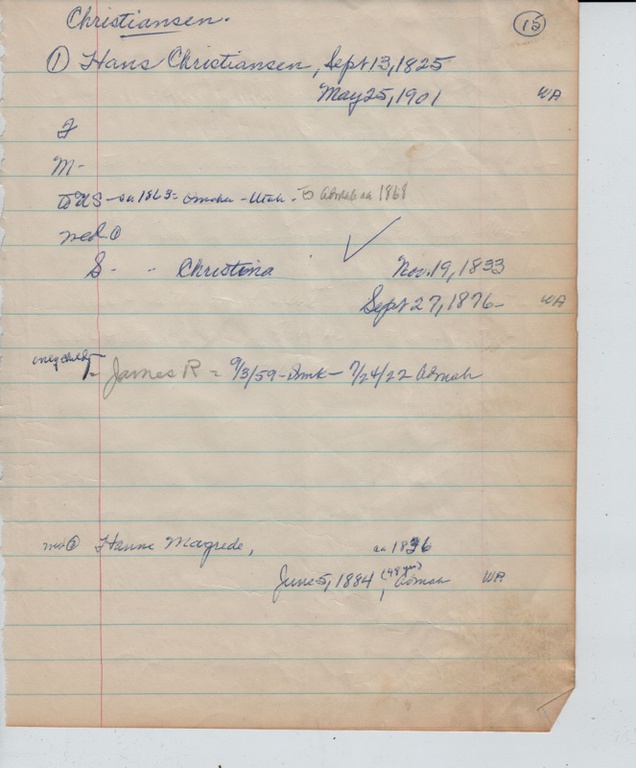 Christiansen.
15
① Hans Christiansen, Sept 13, 1825
May 25, 1901 WA
F
M-
to US - ca 1863 - Omaha - Utah - to Admah ca 1868
med ①
S - - Christina Nov. 19, 1833
Sept 27, 1876 - WA
only child
- James R = 9/3/59 - Dmk - 7/24/22 Admah
② Hanne Magrede, ca 1836
June 5, 1884 (48 yrs), Admah WA